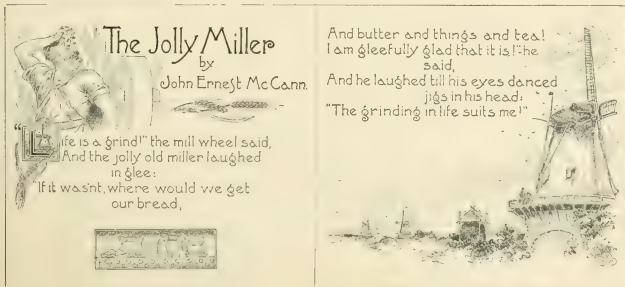 The Jolly Miller
by
John Ernest McCann.
"Life is a grind!" the mill wheel said,
And the jolly old miller laughed
in glee:
"If it was'nt, where would we get
our bread,
And butter and things and tea!
I am gleefully glad that it is!" he
said,
And he laughed till his eyes danced
jigs in his head:
"The grinding in life suits me!"